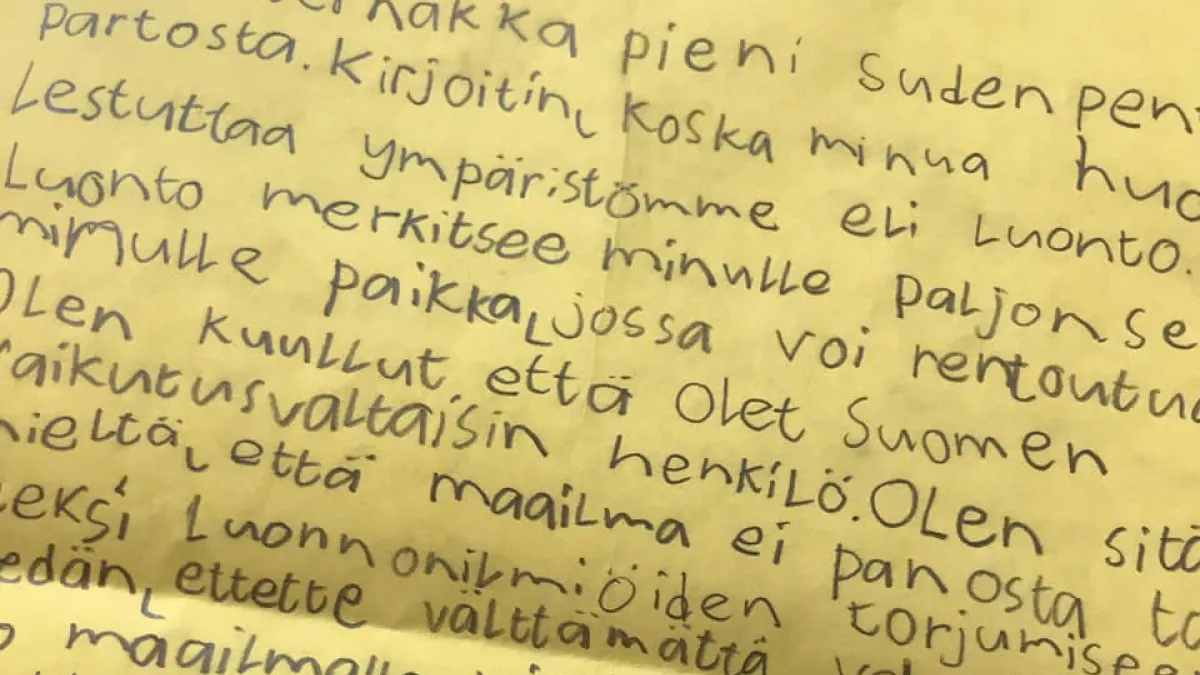 pieni sudenpen
Partosta. Kirjoitin, koska minua huo
Lestuttaa ympäristömme eli Luonto.
Luonto merkitsee minulle paljon se
minulle paikka, jossa voi rentoutu
Olen kuullut, että Olet Suomen
vaikutusvaltaisin henkilö. Olen sitä
mieltä, että maailma ei panosta
eeksi Luonnonilmiöiden torjumisee
edän, ettette välttämättä
maailmalle